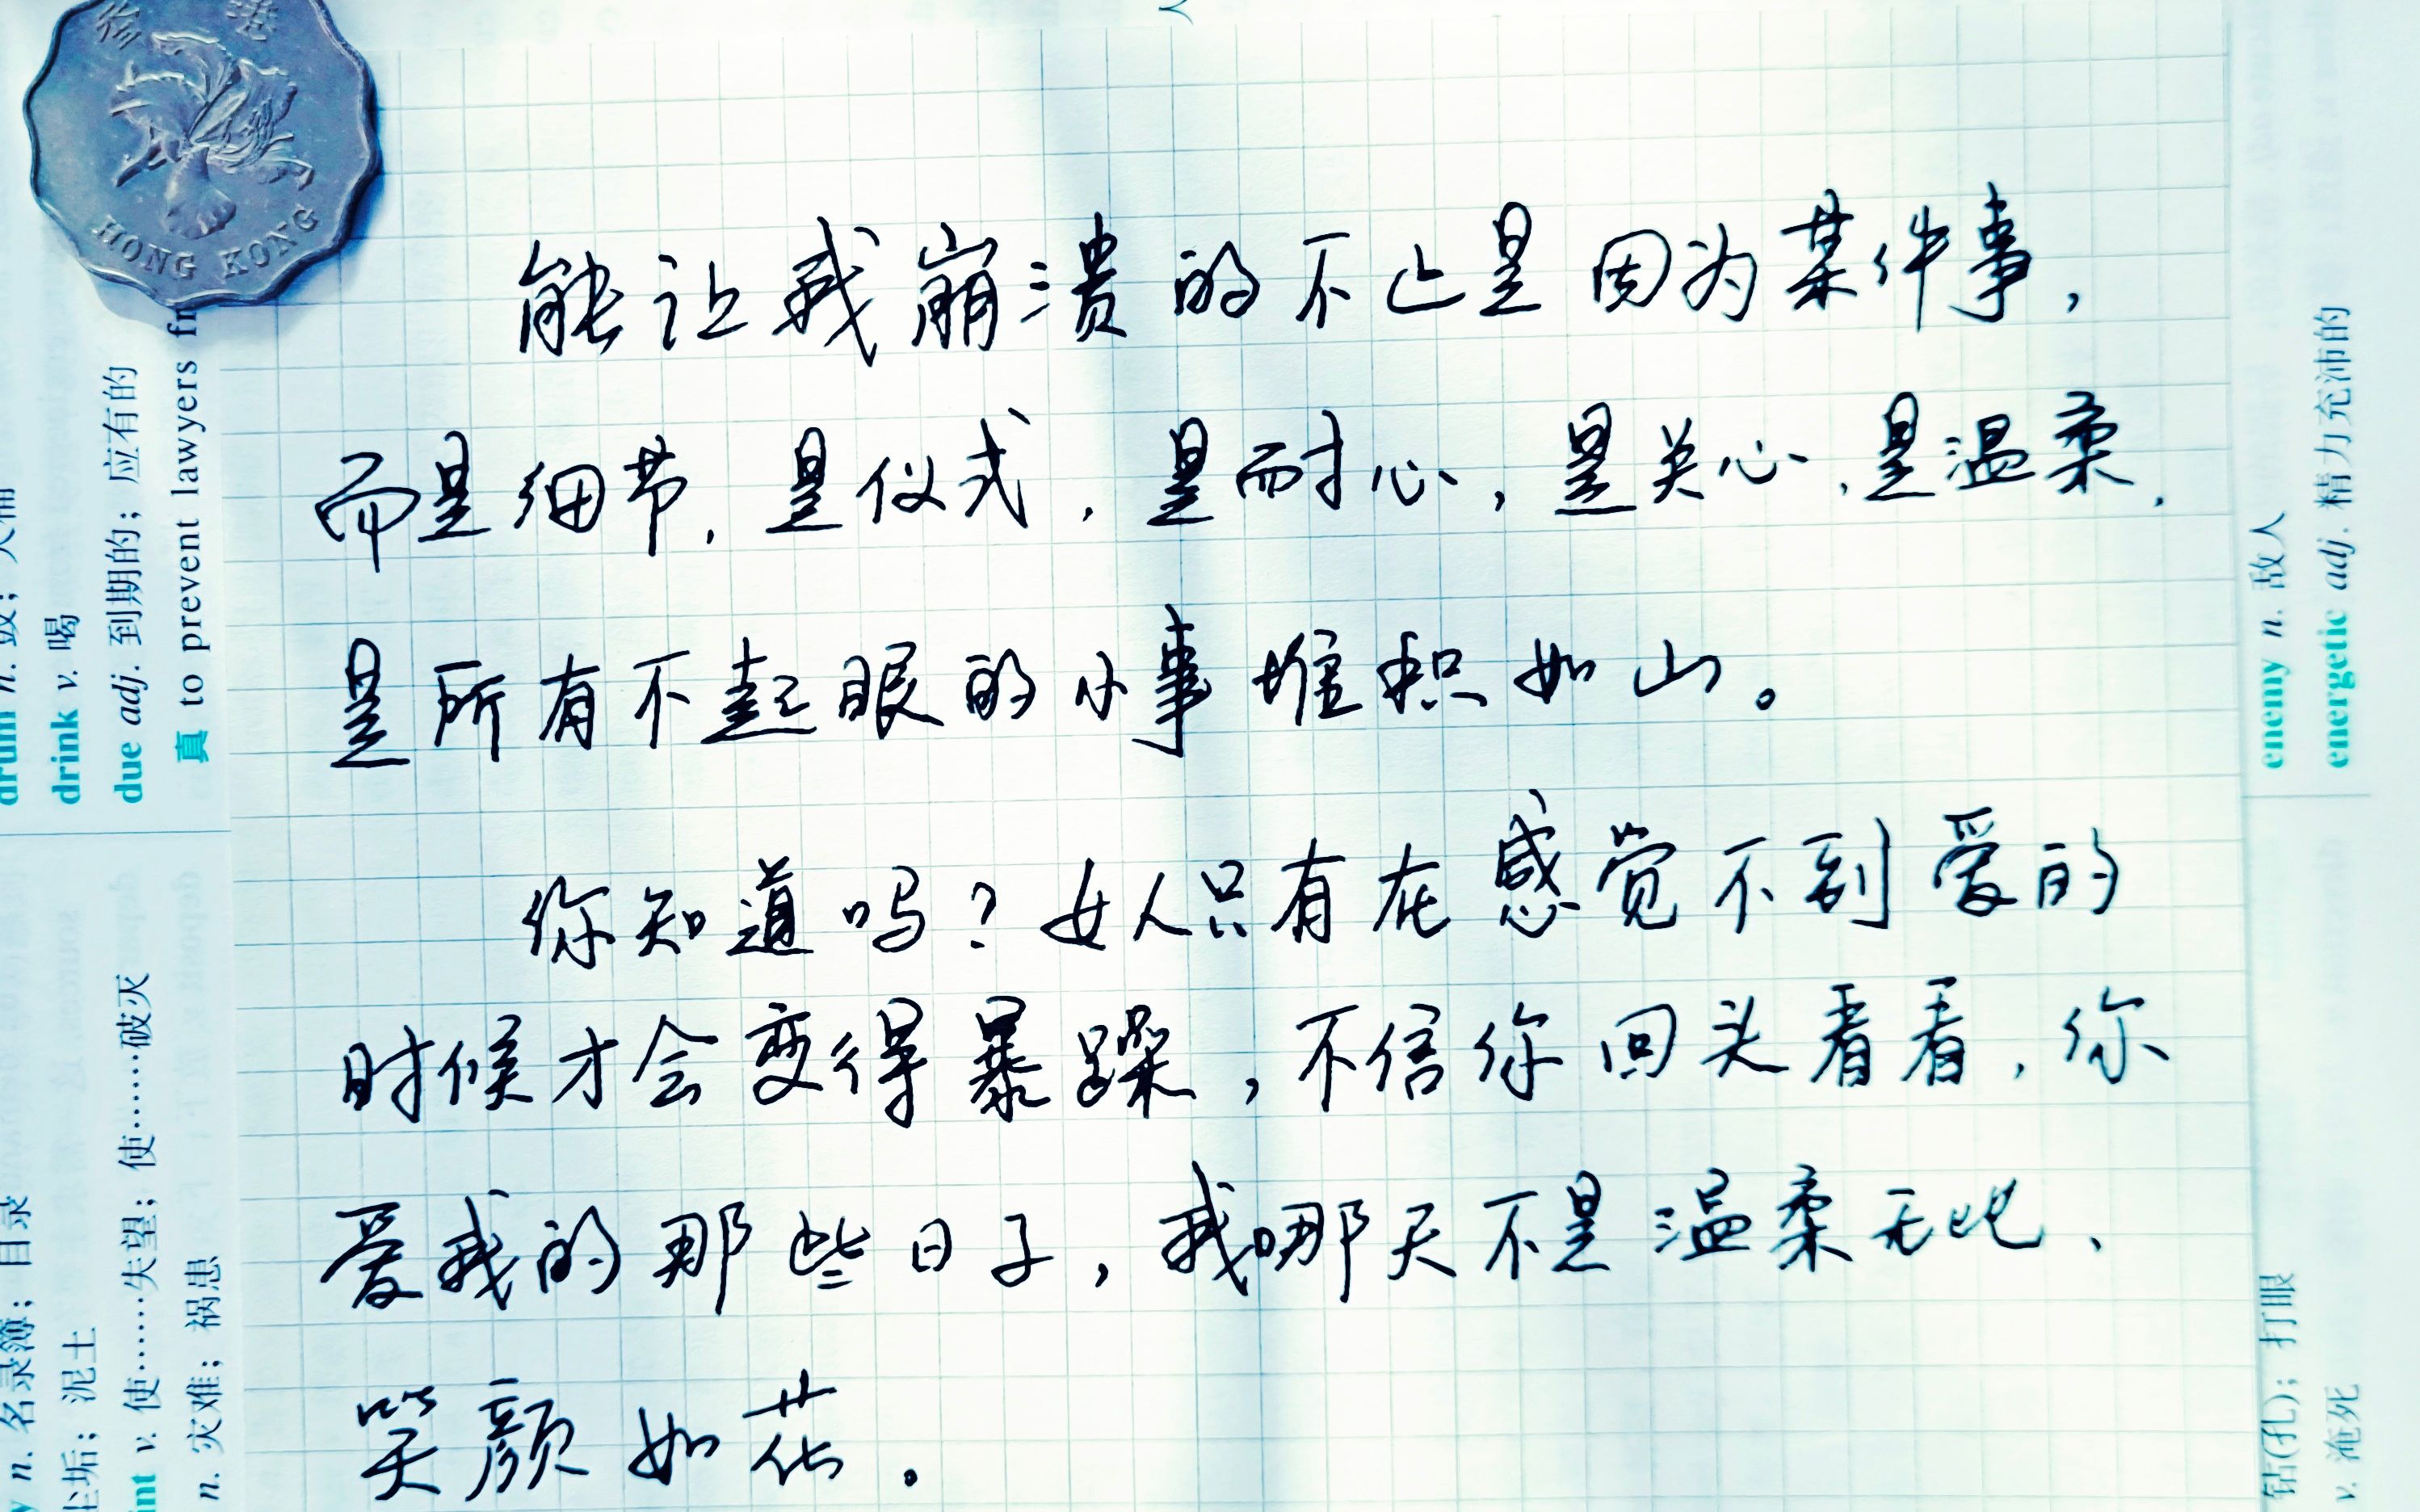 香港
HONG KONG
能让我崩溃的不止是因为某件事，
而是细节，是仪式，是耐心，是关心，是温柔，
是所有不起眼的小事堆积如山。
你知道吗？女人只有在感觉不到爱的
时候才会变得暴躁，不信你回头看看，你
爱我的那些日子，我哪天不是温柔无比、
笑颜如花。
drum n. 鼓；大桶
drink v. 喝
due adj. 到期的；应有的
真 to prevent lawyers
n. 名录簿；目录
尘垢；泥土
v. 使……失望；使……破灭
n. 灾难；祸患
enemy n. 敌人
energetic adj. 精力充沛的
钻(孔)；打眼
v. 淹死